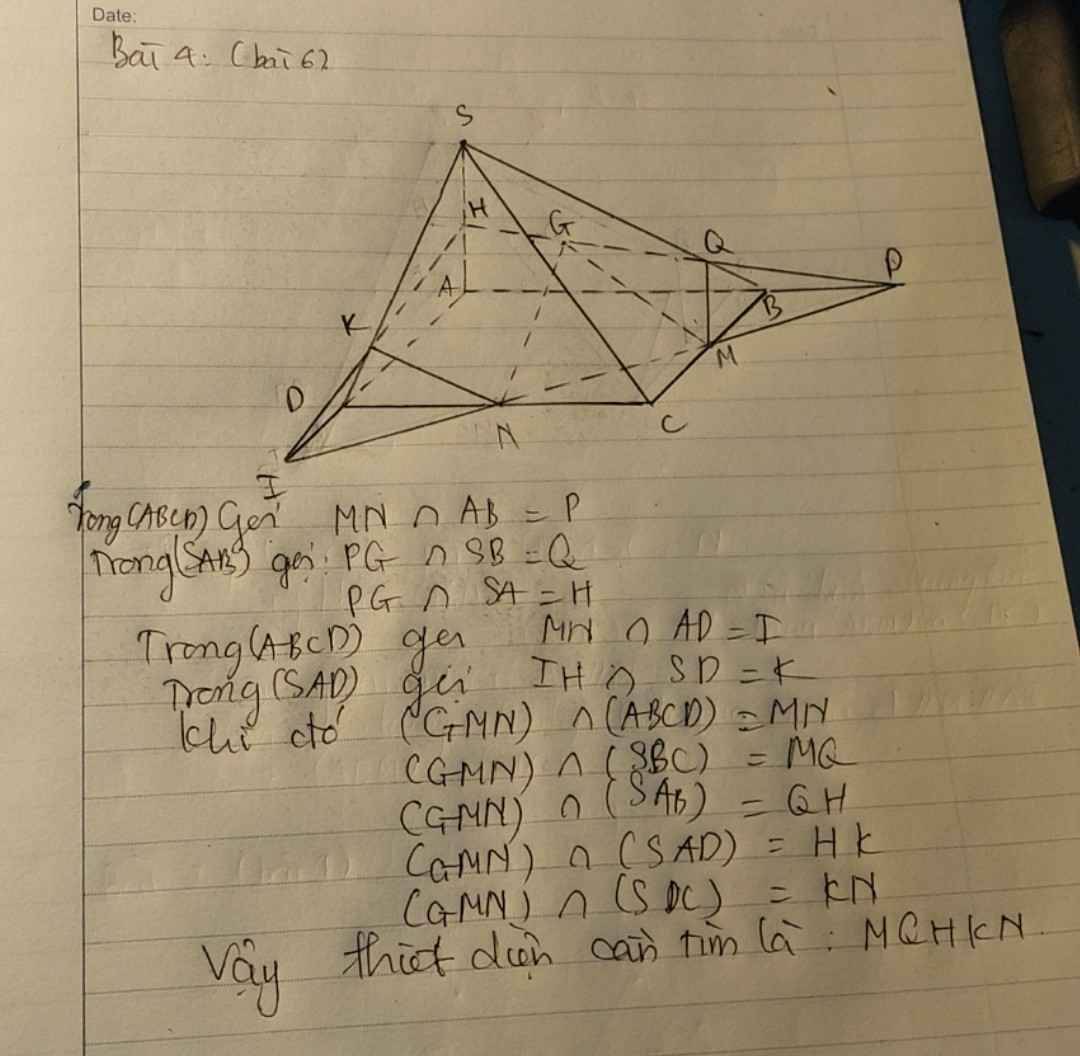 Date:
Bài 4: (bài 62
S
H
G
Q
P
A
B
K
M
D
N
C
I
Trong (ABCD) Gọi MN ∩ AB = P
Trong (SAB) gọi: PG ∩ SB = Q
PG ∩ SA = H
Trong (ABCD) gọi MN ∩ AD = I
Trong (SAD) gọi IH ∩ SD = K
Khi đó (GMN) ∩ (ABCD) = MN
(GMN) ∩ (SBC) = MQ
(GMN) ∩ (SAB) = QH
(GMN) ∩ (SAD) = HK
(GMN) ∩ (SDC) = KN
Vậy thiết diện cần tìm là : MQHKN.